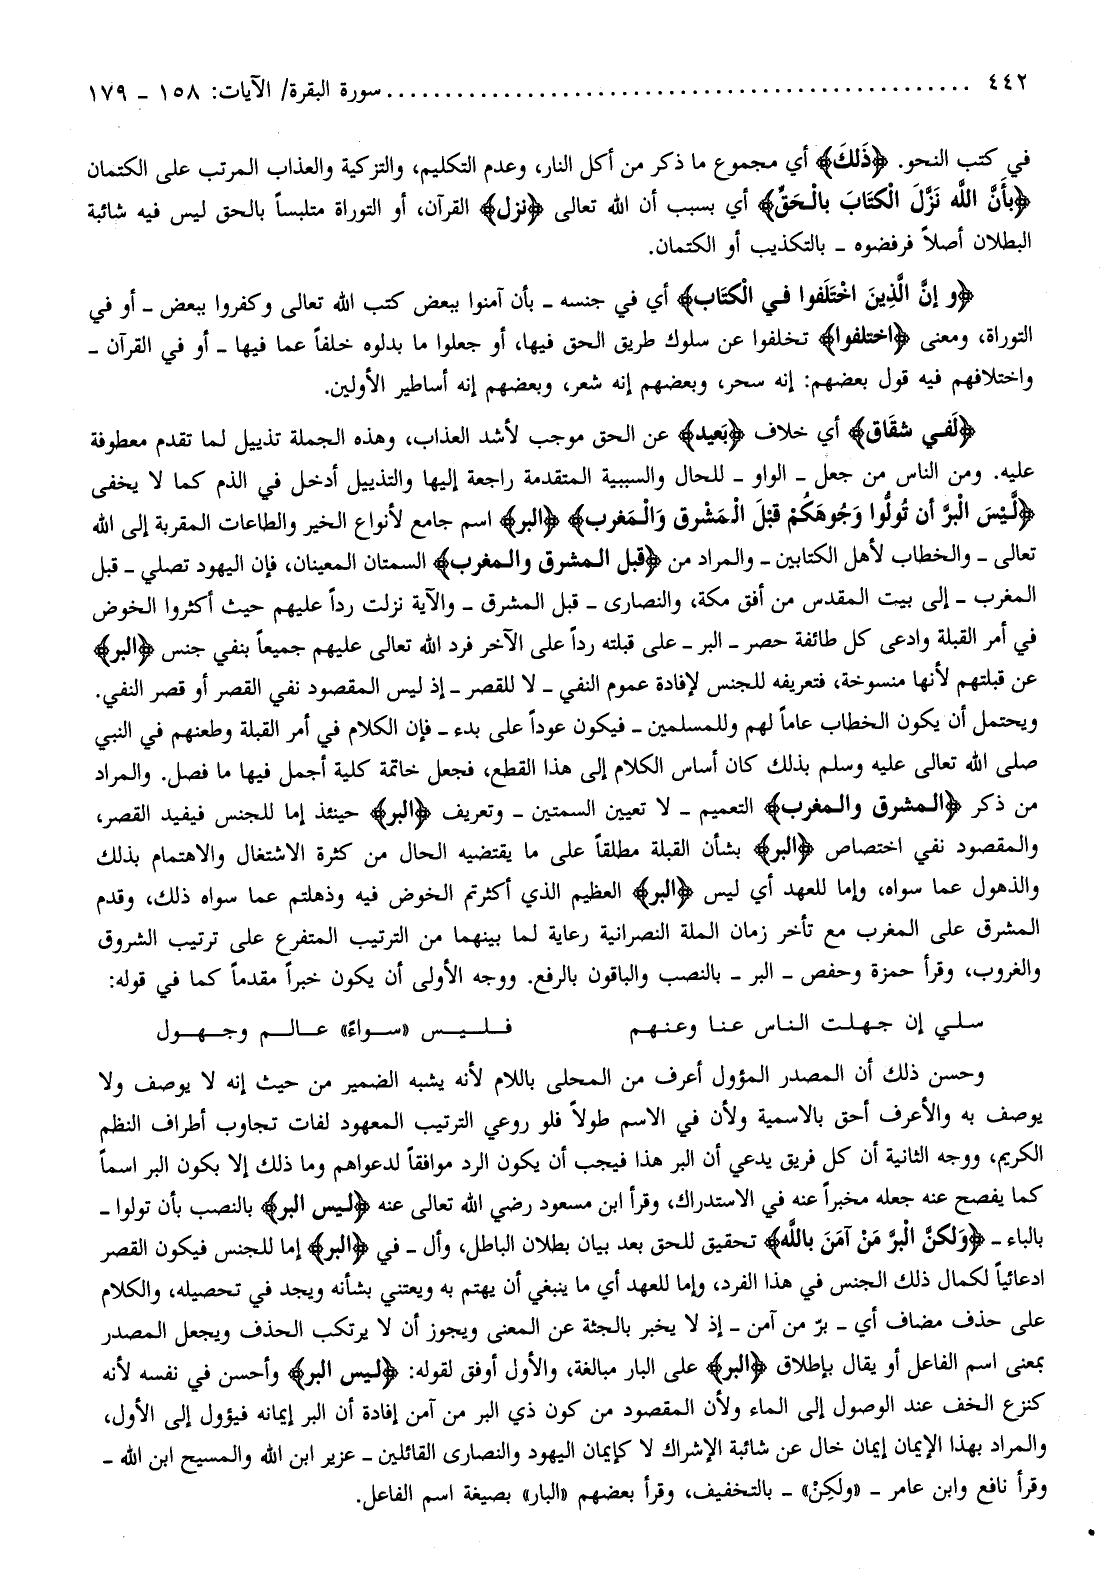 ٤٤٢ ............................................. سورة البقرة/ الآيات: ١٥٨ ـ ١٧٩
في كتب النحو. ﴿ذَلكَ﴾ أي مجموع ما ذكر من أكل النار، وعدم التكليم، والتزكية والعذاب المرتب على الكتمان
﴿بأَنَّ اللَّه نَزَّلَ الْكتَابَ بالْحَقِّ﴾ أي بسبب أن الله تعالى ﴿نزل﴾ القرآن، أو التوراة متلبساً بالحق ليس فيه شائبة
البطلان أصلاً فرفضوه ـ بالتكذيب أو الكتمان.
﴿و إنَّ الَّذينَ اخْتَلَفوا في الْكتَاب﴾ أي في جنسه ـ بأن آمنوا ببعض كتب الله تعالى وكفروا ببعض ـ أو في
التوراة، ومعنى ﴿اختلفوا﴾ تخلفوا عن سلوك طريق الحق فيها، أو جعلوا ما بدلوه خلفاً عما فيها ـ أو في القرآن ـ
واختلافهم فيه قول بعضهم: إنه سحر، وبعضهم إنه شعر، وبعضهم إنه أساطير الأولين.
﴿لَفي شقَاق﴾ أي خلاف ﴿بَعيد﴾ عن الحق موجب لأشد العذاب، وهذه الجملة تذييل لما تقدم معطوفة
عليه. ومن الناس من جعل ـ الواو ـ للحال والسببية المتقدمة راجعة إليها والتذييل أدخل في الذم كما لا يخفى
﴿لَّيْسَ الْبرَّ أن تُولُّوا وَجُوهَكُمْ قبْلَ الْمَشْرق وَالْمَغرب﴾ ﴿البر﴾ اسم جامع لأنواع الخير والطاعات المقربة إلى الله
تعالى ـ والخطاب لأهل الكتابين ـ والمراد من ﴿قبل المشرق والمغرب﴾ السمتان المعينان، فإن اليهود تصلي ـ قبل
المغرب ـ إلى بيت المقدس من أفق مكة، والنصارى ـ قبل المشرق ـ والآية نزلت رداً عليهم حيث أكثروا الخوض
في أمر القبلة وادعى كل طائفة حصر ـ البر ـ على قبلته رداً على الآخر فرد الله تعالى عليهم جميعاً بنفي جنس ﴿البر﴾
عن قبلتهم لأنها منسوخة، فتعريفه للجنس لإفادة عموم النفي ـ لا للقصر ـ إذ ليس المقصود نفي القصر أو قصر النفي.
ويحتمل أن يكون الخطاب عاماً لهم وللمسلمين ـ فيكون عوداً على بدء ـ فإن الكلام في أمر القبلة وطعنهم في النبي
صلى الله تعالى عليه وسلم بذلك كان أساس الكلام إلى هذا القطع، فجعل خاتمة كلية أجمل فيها ما فصل. والمراد
من ذكر ﴿المشرق والمغرب﴾ التعميم ـ لا تعيين السمتين ـ وتعريف ﴿البر﴾ حينئذ إما للجنس فيفيد القصر،
والمقصود نفي اختصاص ﴿البر﴾ بشأن القبلة مطلقاً على ما يقتضيه الحال من كثرة الاشتغال والاهتمام بذلك
والذهول عما سواه، وإما للعهد أي ليس ﴿البر﴾ العظيم الذي أكثرتم الخوض فيه وذهلتم عما سواه ذلك، وقدم
المشرق على المغرب مع تأخر زمان الملة النصرانية رعاية لما بينهما من الترتيب المتفرع على ترتيب الشروق
والغروب، وقرأ حمزة وحفص ـ البر ـ بالنصب والباقون بالرفع. ووجه الأولى أن يكون خبراً مقدماً كما في قوله:
سلي إن جهلت الناس عنا وعنهم فليس «سواءً» عالم وجهول
وحسن ذلك أن المصدر المؤول أعرف من المحلى باللام لأنه يشبه الضمير من حيث إنه لا يوصف ولا
يوصف به والأعرف أحق بالاسمية ولأن في الاسم طولاً فلو روعي الترتيب المعهود لفات تجاوب أطراف النظم
الكريم، ووجه الثانية أن كل فريق يدعي أن البر هذا فيجب أن يكون الرد موافقاً لدعواهم وما ذلك إلا بكون البر اسماً
كما يفصح عنه جعله مخبراً عنه في الاستدراك، وقرأ ابن مسعود رضي الله تعالى عنه ﴿ليس البر﴾ بالنصب بأن تولوا ـ
بالباء ـ ﴿وَلَكنَّ الْبرَّ مَنْ آمَنَ باللَّه﴾ تحقيق للحق بعد بيان بطلان الباطل، وأل ـ في ﴿البر﴾ إما للجنس فيكون القصر
ادعائياً لكمال ذلك الجنس في هذا الفرد، وإما للعهد أي ما ينبغي أن يهتم به ويعتني بشأنه ويجد في تحصيله، والكلام
على حذف مضاف أي ـ برّ من آمن ـ إذ لا يخبر بالجثة عن المعنى ويجوز أن لا يرتكب الحذف ويجعل المصدر
بمعنى اسم الفاعل أو يقال بإطلاق ﴿البر﴾ على البار مبالغة، والأول أوفق لقوله: ﴿ليس البر﴾ وأحسن في نفسه لأنه
كنزع الخف عند الوصول إلى الماء ولأن المقصود من كون ذي البر من آمن إفادة أن البر إيمانه فيؤول إلى الأول،
والمراد بهذا الإيمان إيمان خال عن شائبة الإشراك لا كإيمان اليهود والنصارى القائلين ـ عزير ابن الله والمسيح ابن الله ـ
وقرأ نافع وابن عامر ـ «ولَكِنْ» ـ بالتخفيف، وقرأ بعضهم «البار» بصيغة اسم الفاعل.